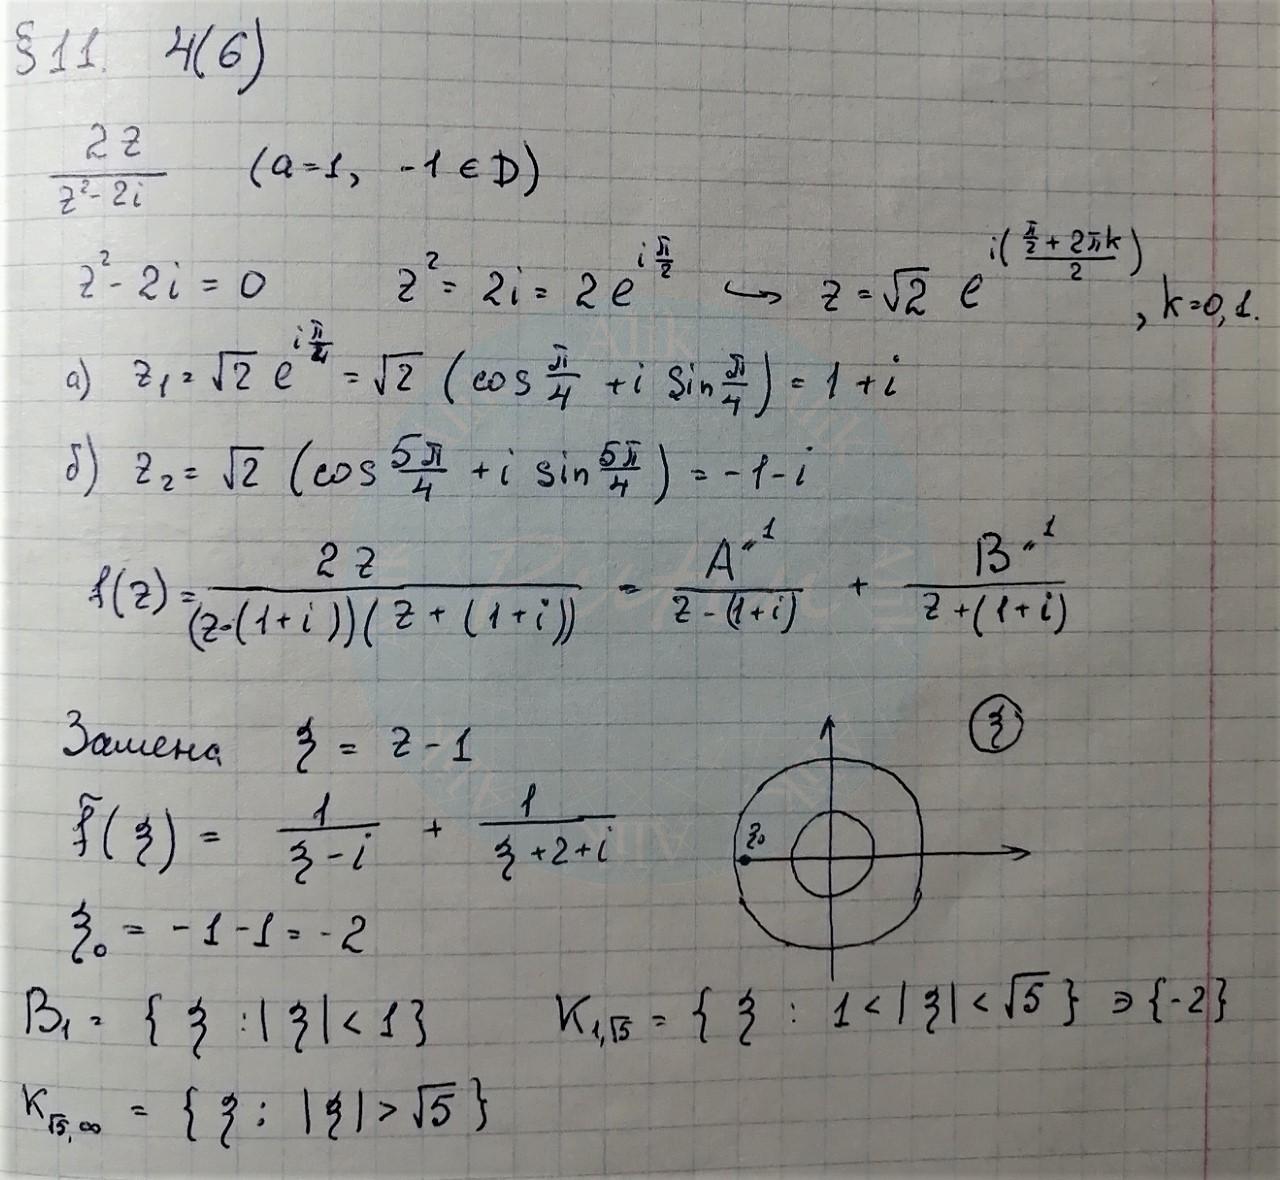 § 11. 4(6)
2z / (z² - 2i) (a=1, -1 ∈ D)
z² - 2i = 0 z² = 2i = 2e^{i π/2} ↪ z = √2 e^{i((π/2 + 2πk)/2)}, k=0,1.
а) z₁ = √2 e^{i π/4} = √2 (cos π/4 + i sin π/4) = 1 + i
б) z₂ = √2 (cos 5π/4 + i sin 5π/4) = -1 - i
f(z) = 2z / ((z-(1+i))(z+(1+i))) = A^{=1} / (z-(1+i)) + B^{=1} / (z+(1+i))
Замена ξ = z - 1
ξ
f̃(ξ) = 1/(ξ - i) + 1/(ξ + 2 + i)
ξ₀
ξ₀ = -1 - 1 = -2
B₁ = { ξ : |ξ| < 1 } K_{1,√5} = { ξ : 1 < |ξ| < √5 } ∋ {-2}
K_{√5,∞} = { ξ : |ξ| > √5 }
Alik
Alik
Alik